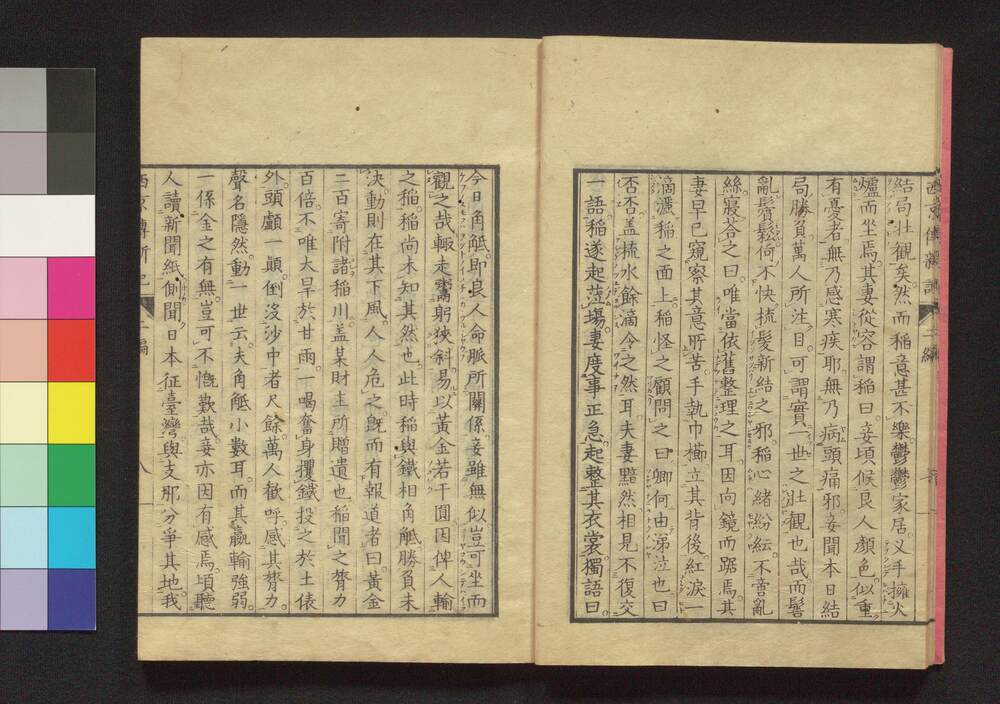 結局壯觀矣。然而稲意甚不樂。鬱鬱家居。义手擁火
爐而坐焉。其妻從容謂稲曰。妾頃候良人顏色。似重
有憂者。無乃感寒疾耶。無乃病頭痛邪。妾聞本日結
局勝負。萬人所注目。可謂實一世之壯觀也哉。而髻
亂鬢鬆。何不快梳髮新結之邪。稲心緒紛紜。不啻亂
絲。寂答之曰。唯當依舊整理之耳。因向鏡而踞焉。其
妻早已窺察其意所苦。手執巾櫛立其背後。紅淚一
滴濺稲之面上。稲怪之顧問之曰。卿何由涕泣也。曰
否否。蓋梳水餘滴令之然耳。夫妻黯然相見。不復交
一語。稲遂起蒞塲。妻度事正急。起整其衣裳。獨語曰。
西京傳新記 二編
今日角觝。即良人命脈所關係。妾雖無似。豈可坐而
觀之哉。輙走鬻躬狹斜。易以黃金若干圓。因俾人輸
之稲。稲尚未知其然也。此時稲與鐵相角觝。勝負未
決。動則在其下風。人人危之。既而有報道者曰。黃金
二百寄附諸稲川。盖某財主所贈遺也。稲聞之。膂力
百倍。不唯大旱於甘雨。一喝奮身攫鐵。投之於土俵
外。頭顱一顚。倒沒沙中者尺餘。萬人歡呼。感其膂力。
聲名隱然。動一世云。夫角觝小數耳。而其贏輸強弱。
一係金之有無。豈可不慨歎哉。妾亦因有感焉。頃聽
人讀新聞紙。側聞日本征臺灣。與支那分爭其地。我
西京傳新記 二編 八